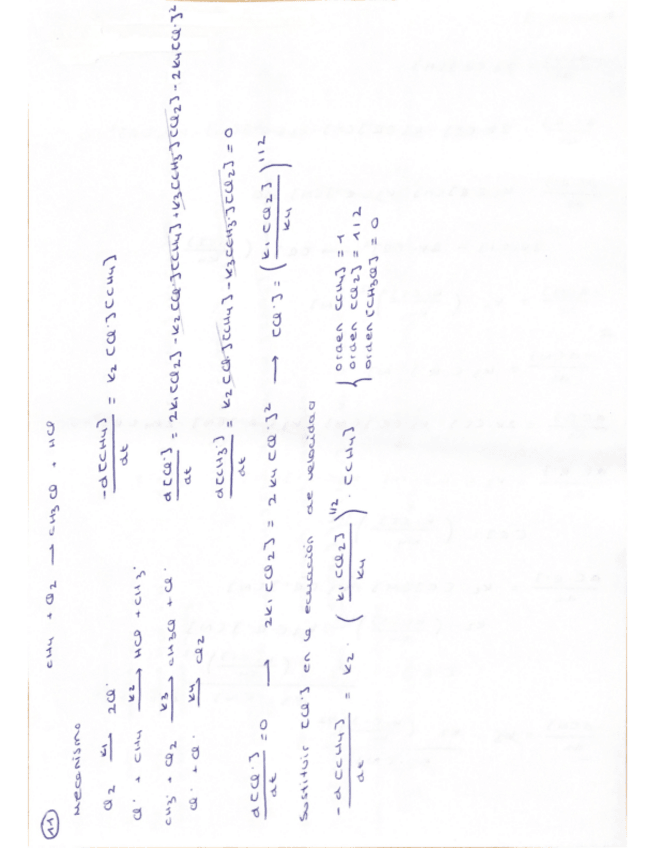 11
CH4 + Cl2 → CH3Cl + HCl
Mecanismo
Cl2 —k1→ 2Cl·
-d[CH4]/dt = k2 [Cl·][CH4]
Cl· + CH4 —k2→ HCl + CH3·
CH3· + Cl2 —k3→ CH3Cl + Cl·
d[Cl·]/dt = 2k1[Cl2] - k2[Cl·][CH4] + k3[CH3·][Cl2] - 2k4[Cl·]²
Cl· + Cl· —k4→ Cl2
d[CH3·]/dt = k2[Cl·][CH4] - k3[CH3·][Cl2] = 0
d[Cl·]/dt = 0 → 2k1[Cl2] = 2k4[Cl·]² → [Cl·] = (k1[Cl2]/k4)^1/2
Sustituir [Cl·] en la ecuación de velocidad
-d[CH4]/dt = k2 · (k1[Cl2]/k4)^1/2 · [CH4]
orden [CH4] = 1
orden [Cl2] = 1/2
orden [CH3Cl] = 0